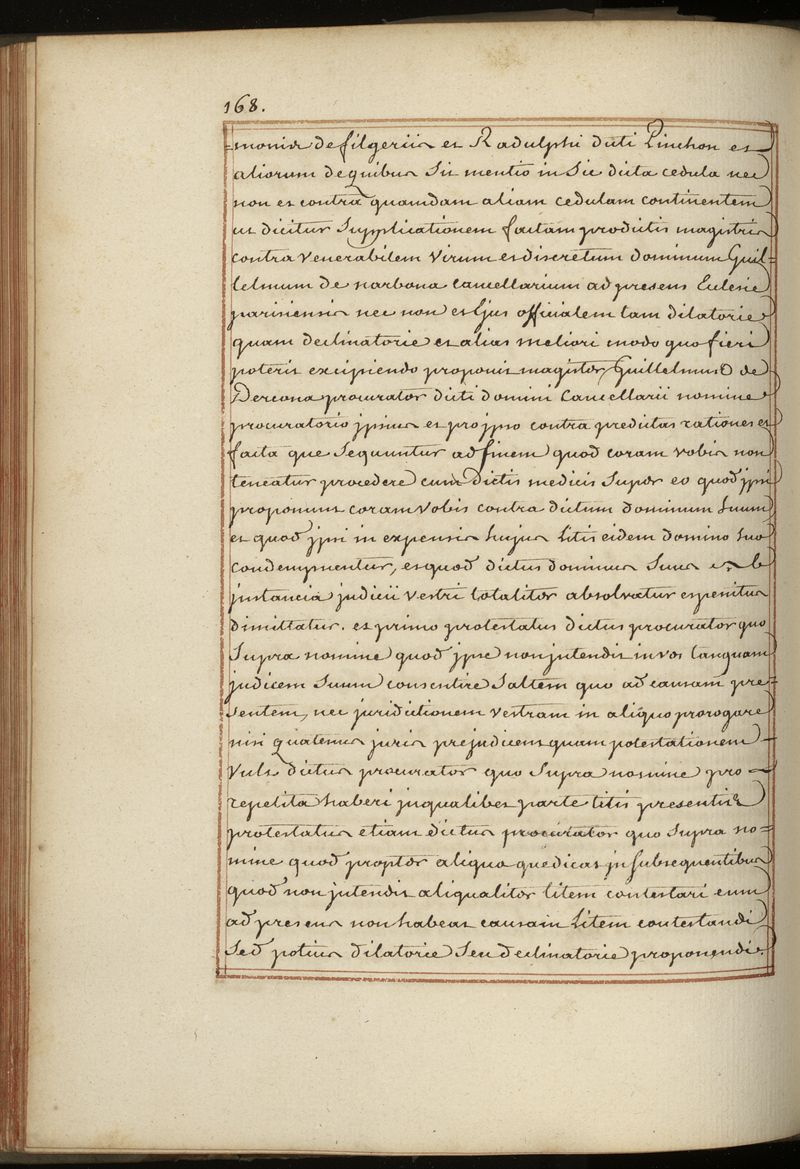 168.
moniis de filgeriis et Radulphi dicti Pinchon et
aliorum de quibus fit mentio in sic dicta cedula nec
non et contra quamdam aliam cedulam continentem
ut dicitur Supplicationem factam predictis magistris
contra venerabilem virum et discretum dominum Guil=
lelmum de narbona cancellarium ad presens Ecclesie
parisiensis nec non et Ejus officialem tam dilatorie
quam declinatorie et alias meliori modo quo fieri
poterit excipiendo proponit magister Guillelmus de
Dercona procurator dicti domini Cancellarii nomine
procuratorio ipsius et pro ipso contra predictas rationes et
facta que Sequuntur ad finem quod coram vobis non
teneatur procedere cum Dictis medicis Super eo quod ipsi
proponunt coram vobis contra dictum dominum Suum
et quod ipsi in expensis hujus litis eidem domino suo
condempnentur, et quod dictus dominus Suus ab
instancia judicii vestri totaliter absolvatur et penitus
dimittatur. et primo protestatus dictus procurator quo
Supra nomine quod ipse non intendit in vos tanquam
judicem Suum consentire Saltem quo ad causam pre=
sentem, nec juridictionem vestram in aliquo prorogare
nisi quatenus juris prejudicens quam potestationem
Vult dictus procurator quo Supra nomine pro
repetita haberi in qualibet parte litis presentis
protestatus etiam dictus procurator quo Supra no=
mine quod propter aliqua que dicat in subsequentibus
quod non intendit aliqualiter litem contestari cum
ad presens non habeat causam litem contestandi
Sed potius dilatorie Seu declinatorie proponendi.